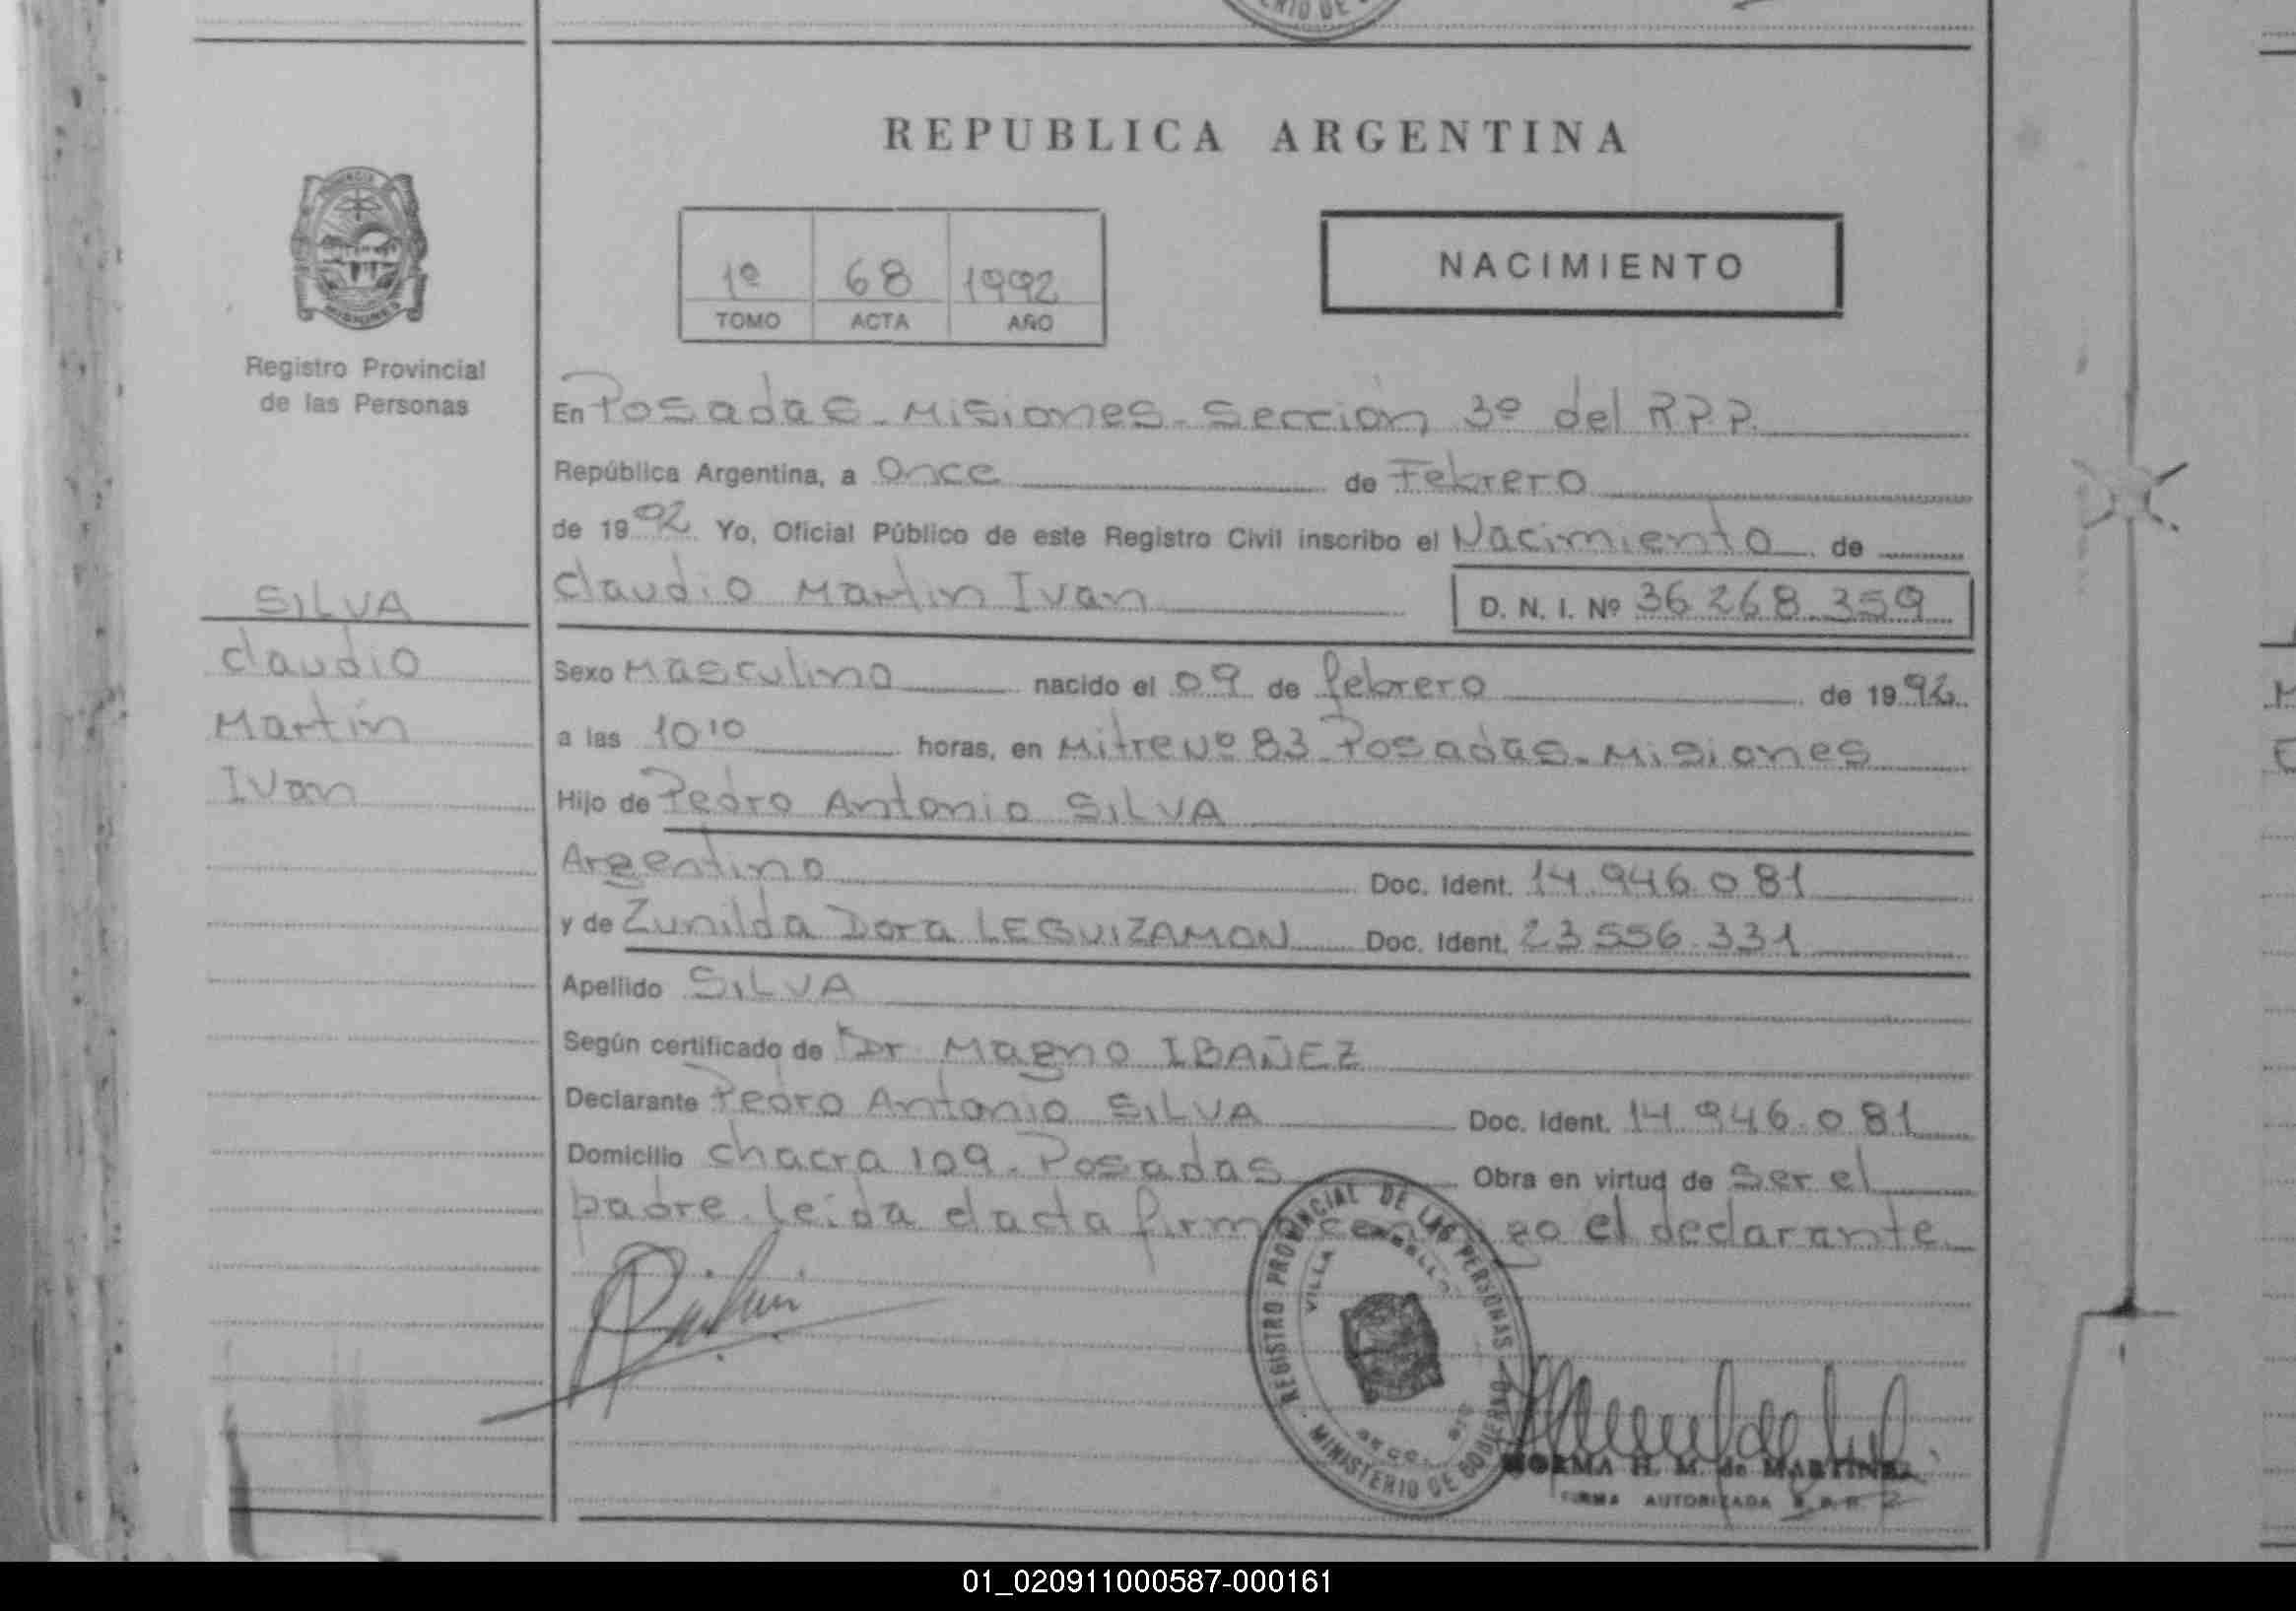 ERIO DE
REPUBLICA ARGENTINA
PROVINCIA
MISIONES
Registro Provincial
de las Personas
1º 68 1992
TOMO ACTA AÑO
NACIMIENTO
En Posadas - Misiones - Sección 3º del R.P.P.
República Argentina, a Once de Febrero
de 1992 Yo, Oficial Público de este Registro Civil inscribo el Nacimiento de
Claudio Martin Ivan D. N. I. Nº 36.268.359
SILVA
Claudio
Martín
Ivan
Sexo Masculino nacido el 09 de febrero de 1992
a las 10 10 horas, en Mitre Nº 83 - Posadas - Misiones
Hijo de Pedro Antonio SILVA
Argentino Doc. Ident. 14.946.081
y de Zunilda Dora LEGUIZAMON Doc. Ident. 23.556.331
Apellido SILVA
Según certificado de Dr Magno IBAÑEZ
Declarante Pedro Antonio SILVA Doc. Ident. 14.946.081
Domicilio Chacra 109 - Posadas Obra en virtud de Ser el
padre. Leída el acta firma conmigo el declarante.
REGISTRO PROVINCIAL DE LAS PERSONAS
MINISTERIO DE GOBIERNO
VILLA
NORMA H. M. de MARTINEZ
FIRMA AUTORIZADA
01_020911000587-000161